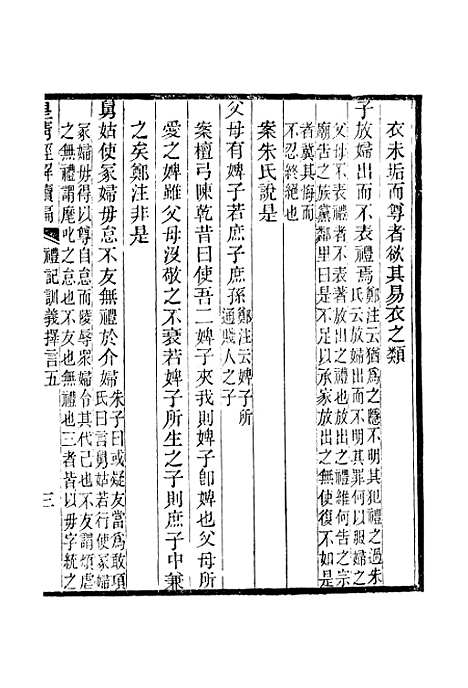 衣未垢而尊者欲其易衣之類
子放婦出而不表禮焉
鄭注云猶爲之隱不明其犯禮之過朱
氏云放子出婦而不明其罪何以服婦之
父母乎不表禮者不表著放出之禮也放出之禮維何告之宗
廟告之族黨鄰里曰是不足以承家放出之使復不如是
者冀其悔而
不忍終絕也
案朱氏說是
父母有婢子若庶子庶孫
鄭注云婢子所
通賤人之子
案檀弓陳乾昔曰使吾二婢子夾我則婢子卽婢也父母所
愛之婢雖父母沒敬之不衰若婢子所生之子則庶子中兼
之矣鄭注非是
舅姑使冢婦毋怠不友無禮於介婦
朱子曰或疑友當爲敢項
氏曰言舅姑若行使冢婦
冢婦毋得以尊自怠而陵辱衆婦令其代己也不友謂煩虐
之無禮謂麾叱之怠也不友也無禮也三者皆以毋字統之
皇清經解續編
禮記訓義擇言五
三